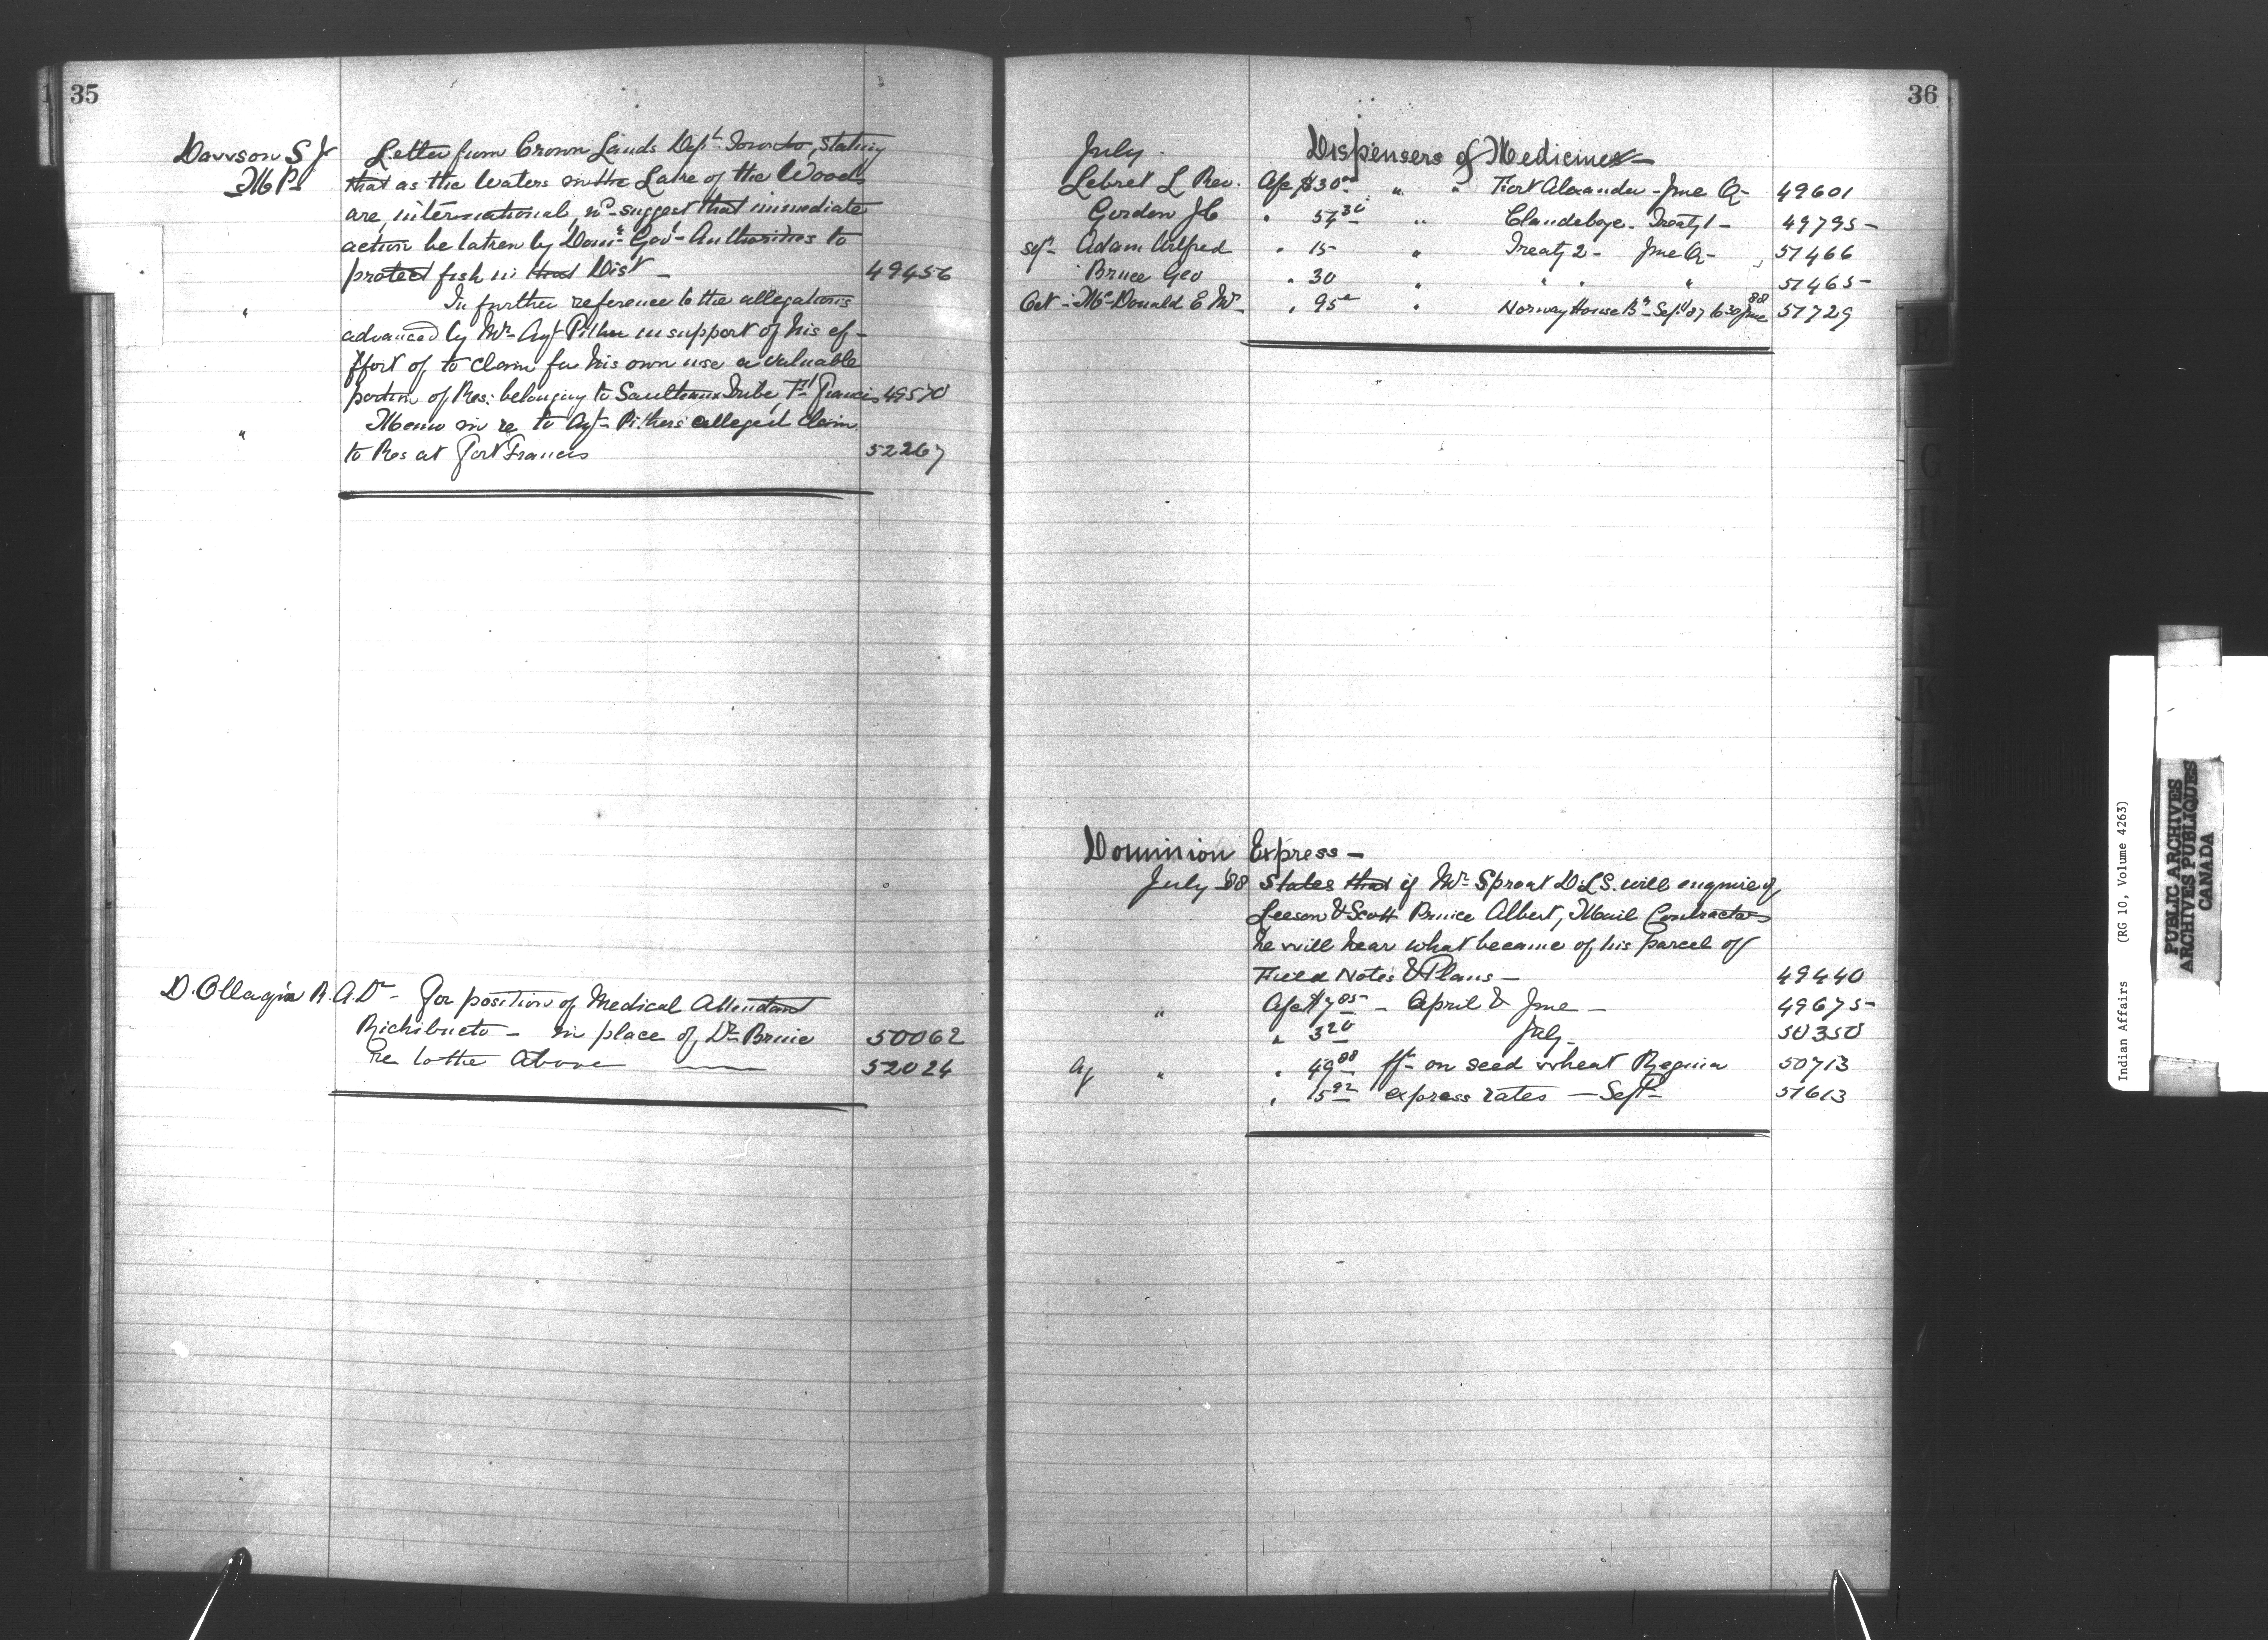 35
Dawson S J Letter from Crown Lands Dept Toronto, stating
M P. that as the Waters in the Lake of the Woods
are international, wd suggest that immediate
action be taken by Domn Govt Authorities to
protect fish in that Dist — 49456
" In further reference to the allegations
advanced by Mr Agt Pither in support of his ef-
ffort of to claim for his own use a valuable
portion of Res: belonging to Saulteaux Tribe Ft Francis 49570
" Memo in re to Agt Pithers alleged claim
to Res at Fort Francis 52267
D. Ollagnia R. A. Dr — For position of Medical Attendant
Richibucto — in place of Dr Bruie 50062
re to the above —— 52024
36
July. Dispensers of Medicines —
Lebret L Rev. Afc $30.00 " " Fort Alexander - June Qr 49601
Gordon J C " 57 30 " Clandeboye - Treaty 1 - 49795
Sept Adam Alfred " 15 - " Treaty 2 - June Qr - 51466
Bruce Geo " 30 " " " " 51465
Oct - McDonald E Mr " 95 " Norway House Bd - Sept 87 to 30 June 88 51729
Dominion Express —
July '88 States that if Mr Sproat D.L.S. will enquire of
Leeson & Scott Prince Albert, Mail Contractors
he will hear what became of his parcel of
Field Notes & Plans — 49440
" Afc $7 85 - April & June - 49675
" 3 20 July - 50350
Ag " " 49 88 fft on seed wheat Regina 50713
" 15 92 express rates — Sept 51613
Indian Affairs (RG 10, Volume 4263)
PUBLIC ARCHIVES
ARCHIVES PUBLIQUES
CANADA
E
F
G
H
I
J
K
L
M